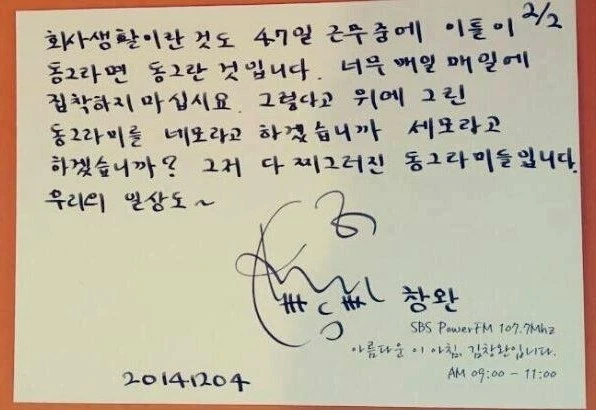 회사생활이란것도 47일 근무중에 이틀이 2/2
동그라면 동그란 것입니다. 너무 매일 매일에
집착하지 마십시요. 그렇다고 위에 그린
동그라미를 네모라고 하겠습니까 세모라고
하겠습니까? 그저 다 찌그러진 동그라미들입니다.
우리의 일상도~
창완
SBS PowerFM 107.7Mhz
아름다운 이 아침, 김창완입니다.
AM 09:00 - 11:00
20141204